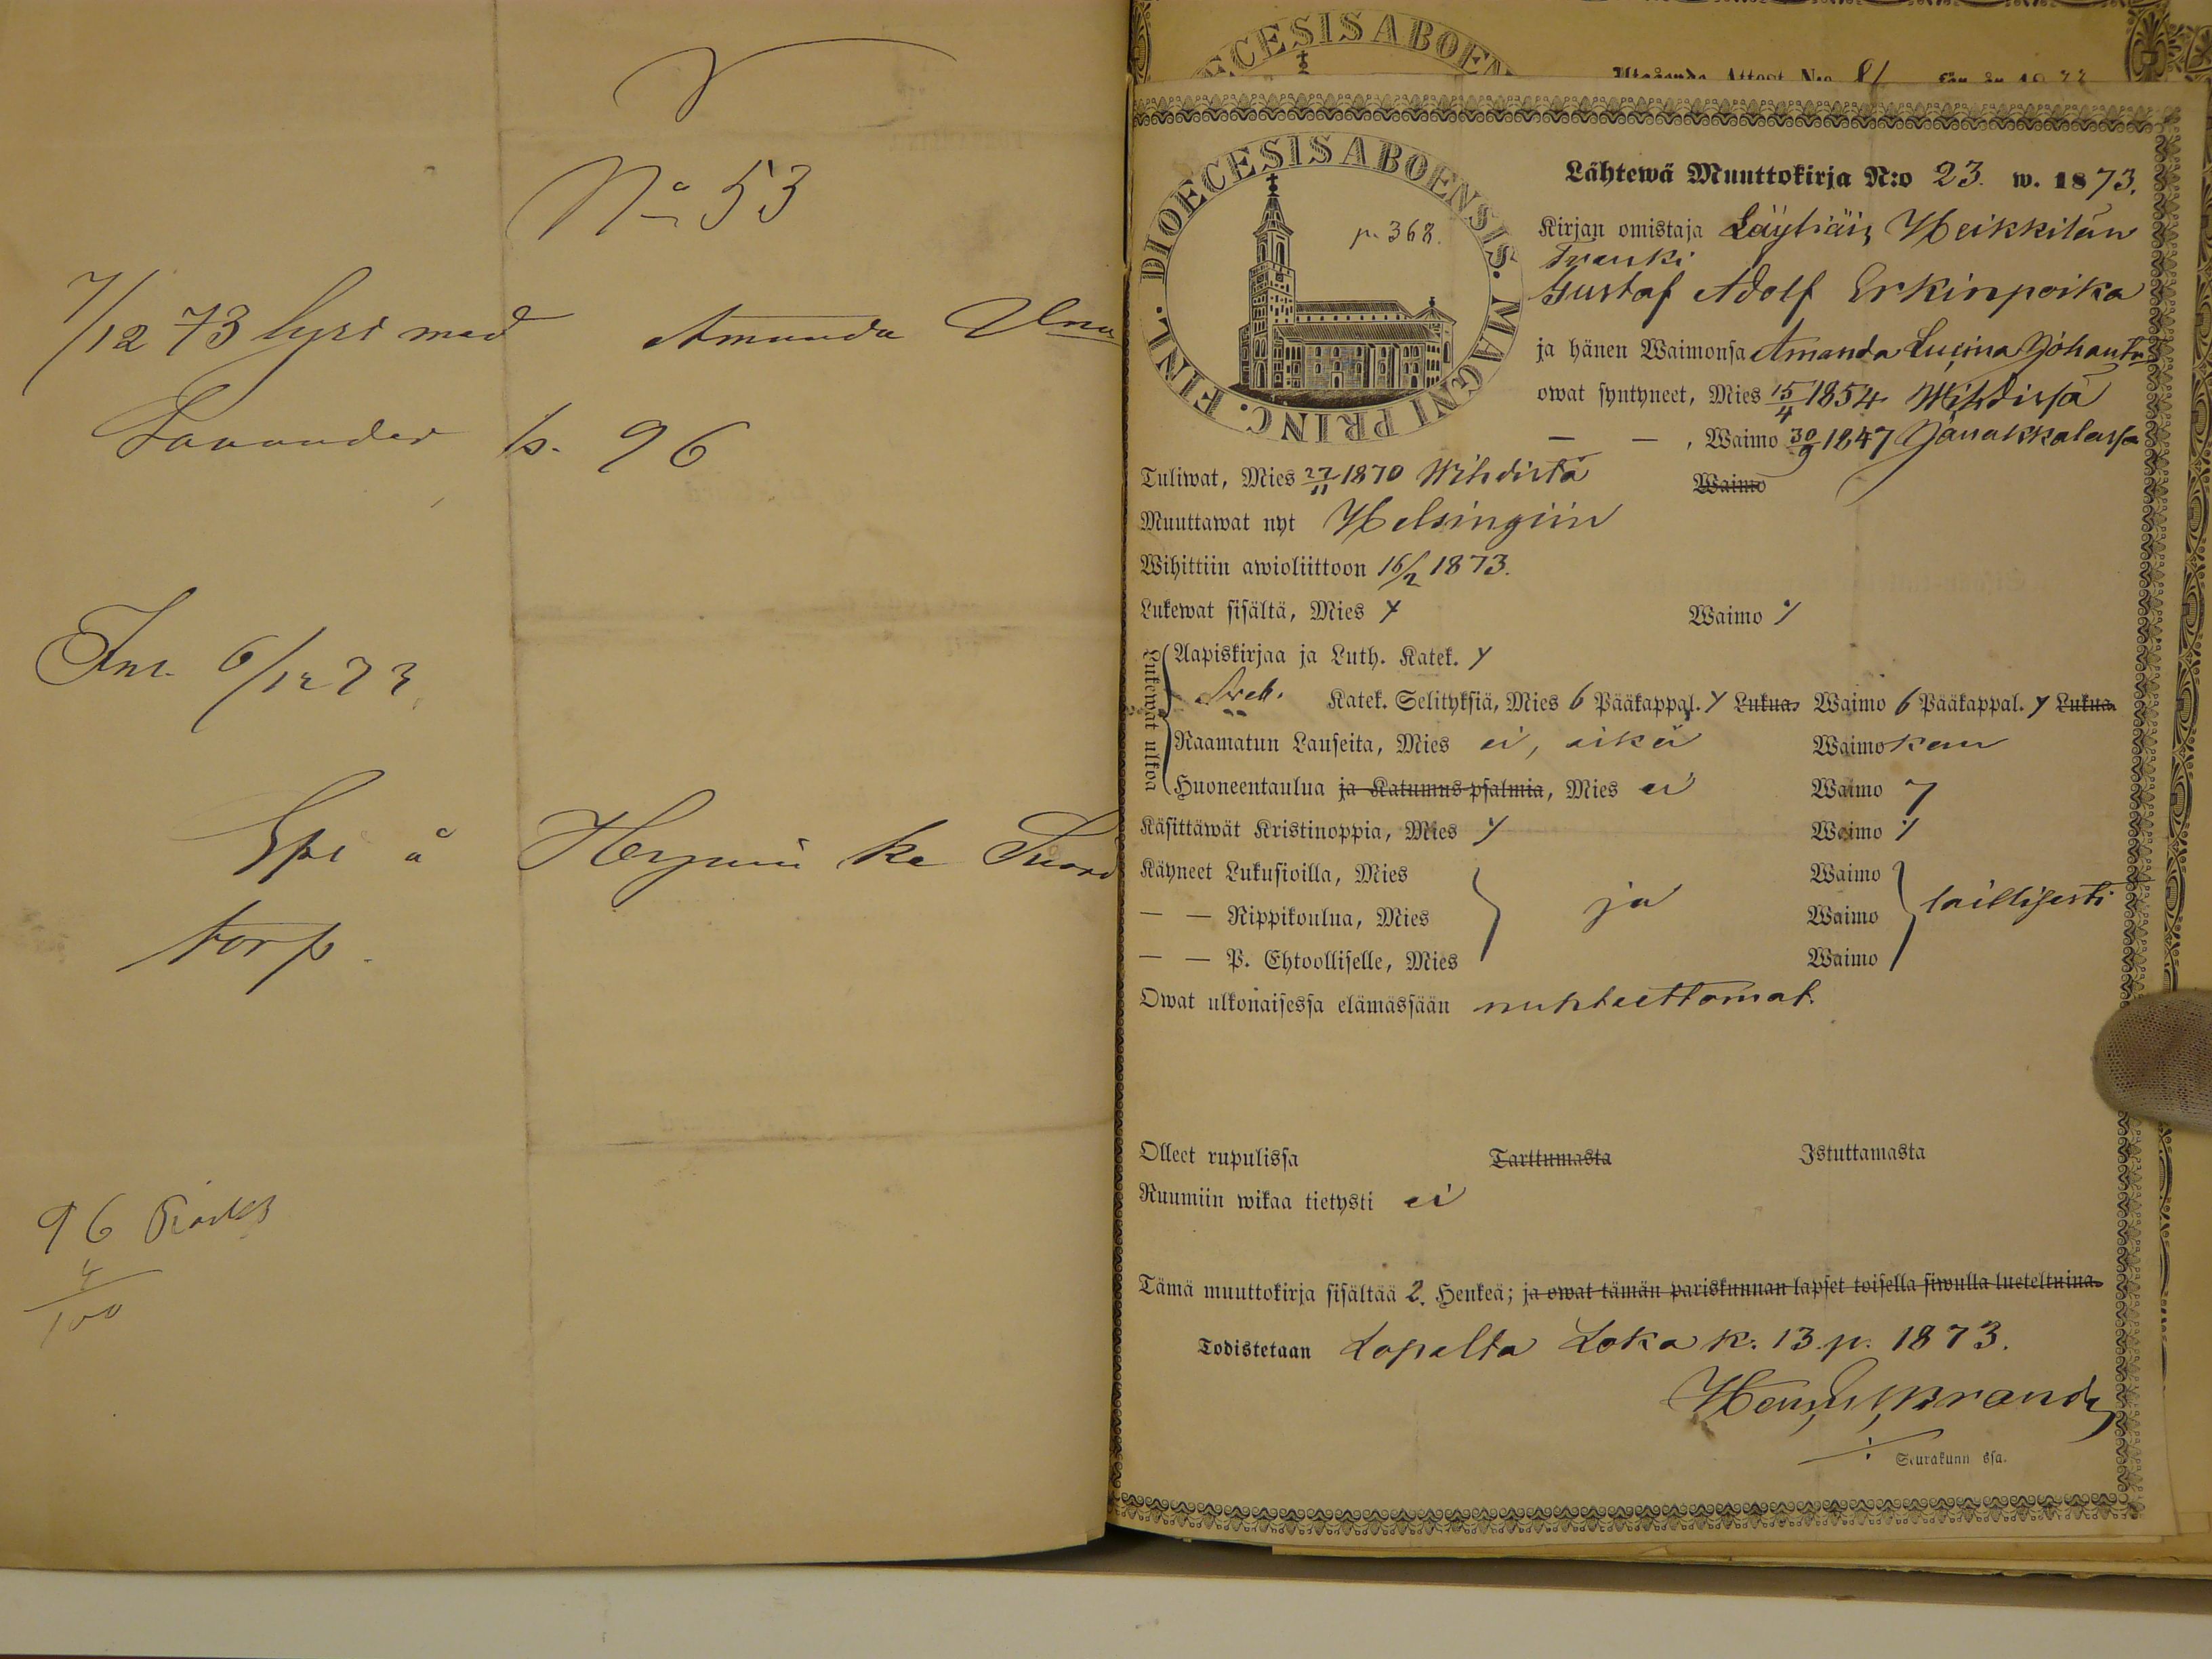 No 53
7/12 73 lyst med Amanda
s. 96
Inl. 6/12 73
å
torp.
96
4
100
DIOECESIS ABOEN
Utgående Attest N:o 81 för år 18
DIOECESIS ABOENSIS. MAGNI PRINC. FINL.
p. 368.
Lähtewä Muuttokirja N:o 23. w. 1873.
Kirjan omistaja Läyliäis Heikkilän
Trenki
Gustaf Adolf Erkinpoika
ja hänen Waimonsa Amanda Lucina Johant:r
owat syntyneet, Mies 15/4 1854 Wihdissä
— — , Waimo 30/9 1847 Janakkalassa
Tuliwat, Mies 27/11 1870 Wihdistä Waimo
Muuttawat nyt Helsingiin
Wihittiin awioliittoon 16/2 1873.
Lukewat sisältä, Mies y Waimo y
Lukewat ulkoa
Aapiskirjaa ja Luth. Katek. y
Sweb. Katek. Selityksiä, Mies 6 Pääkappal. y Lukua. Waimo 6 Pääkappal. y Lukua.
Raamatun Lauseita, Mies ei, eikä Waimokaan
Huoneentaulua ja Katumus-psalmia, Mies ei Waimo y
Käsittäwät Kristinoppia, Mies y Waimo y
Käyneet Lukusioilla, Mies Waimo
— — Rippikoulua, Mies ja Waimo laillisesti
— — P. Ehtoolliselle, Mies Waimo
Owat ulkonaisessa elämässään nuhteettomat.
Olleet rupulissa Tarttumasta Istuttamasta
Ruumiin wikaa tietysti ei
Tämä muuttokirja sisältää 2. Henkeä; ja owat tämän pariskunnan lapset toisella siwulla lueteltuina.
Todistetaan Lopelta Loka k. 13 p. 1873.
Seurakunn ssa.